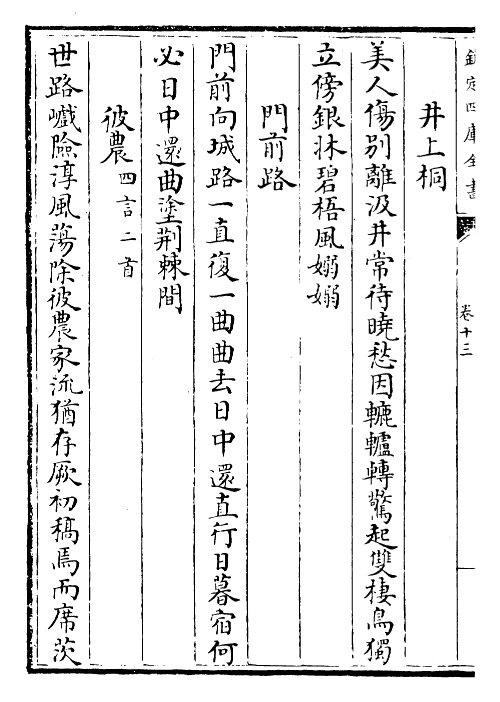 欽定四庫全書
卷十三
井上桐
美人傷別離汲井常待曉愁因轆轤轉驚起雙棲鳥獨
立傍銀牀碧梧風嫋嫋
門前路
門前向城路一直復一曲曲去日中還直行日暮宿何
必日中還曲塗荆棘間
彼農四言二首
世路巇險淳風蕩除彼農家流猶存厥初稿焉而席茨